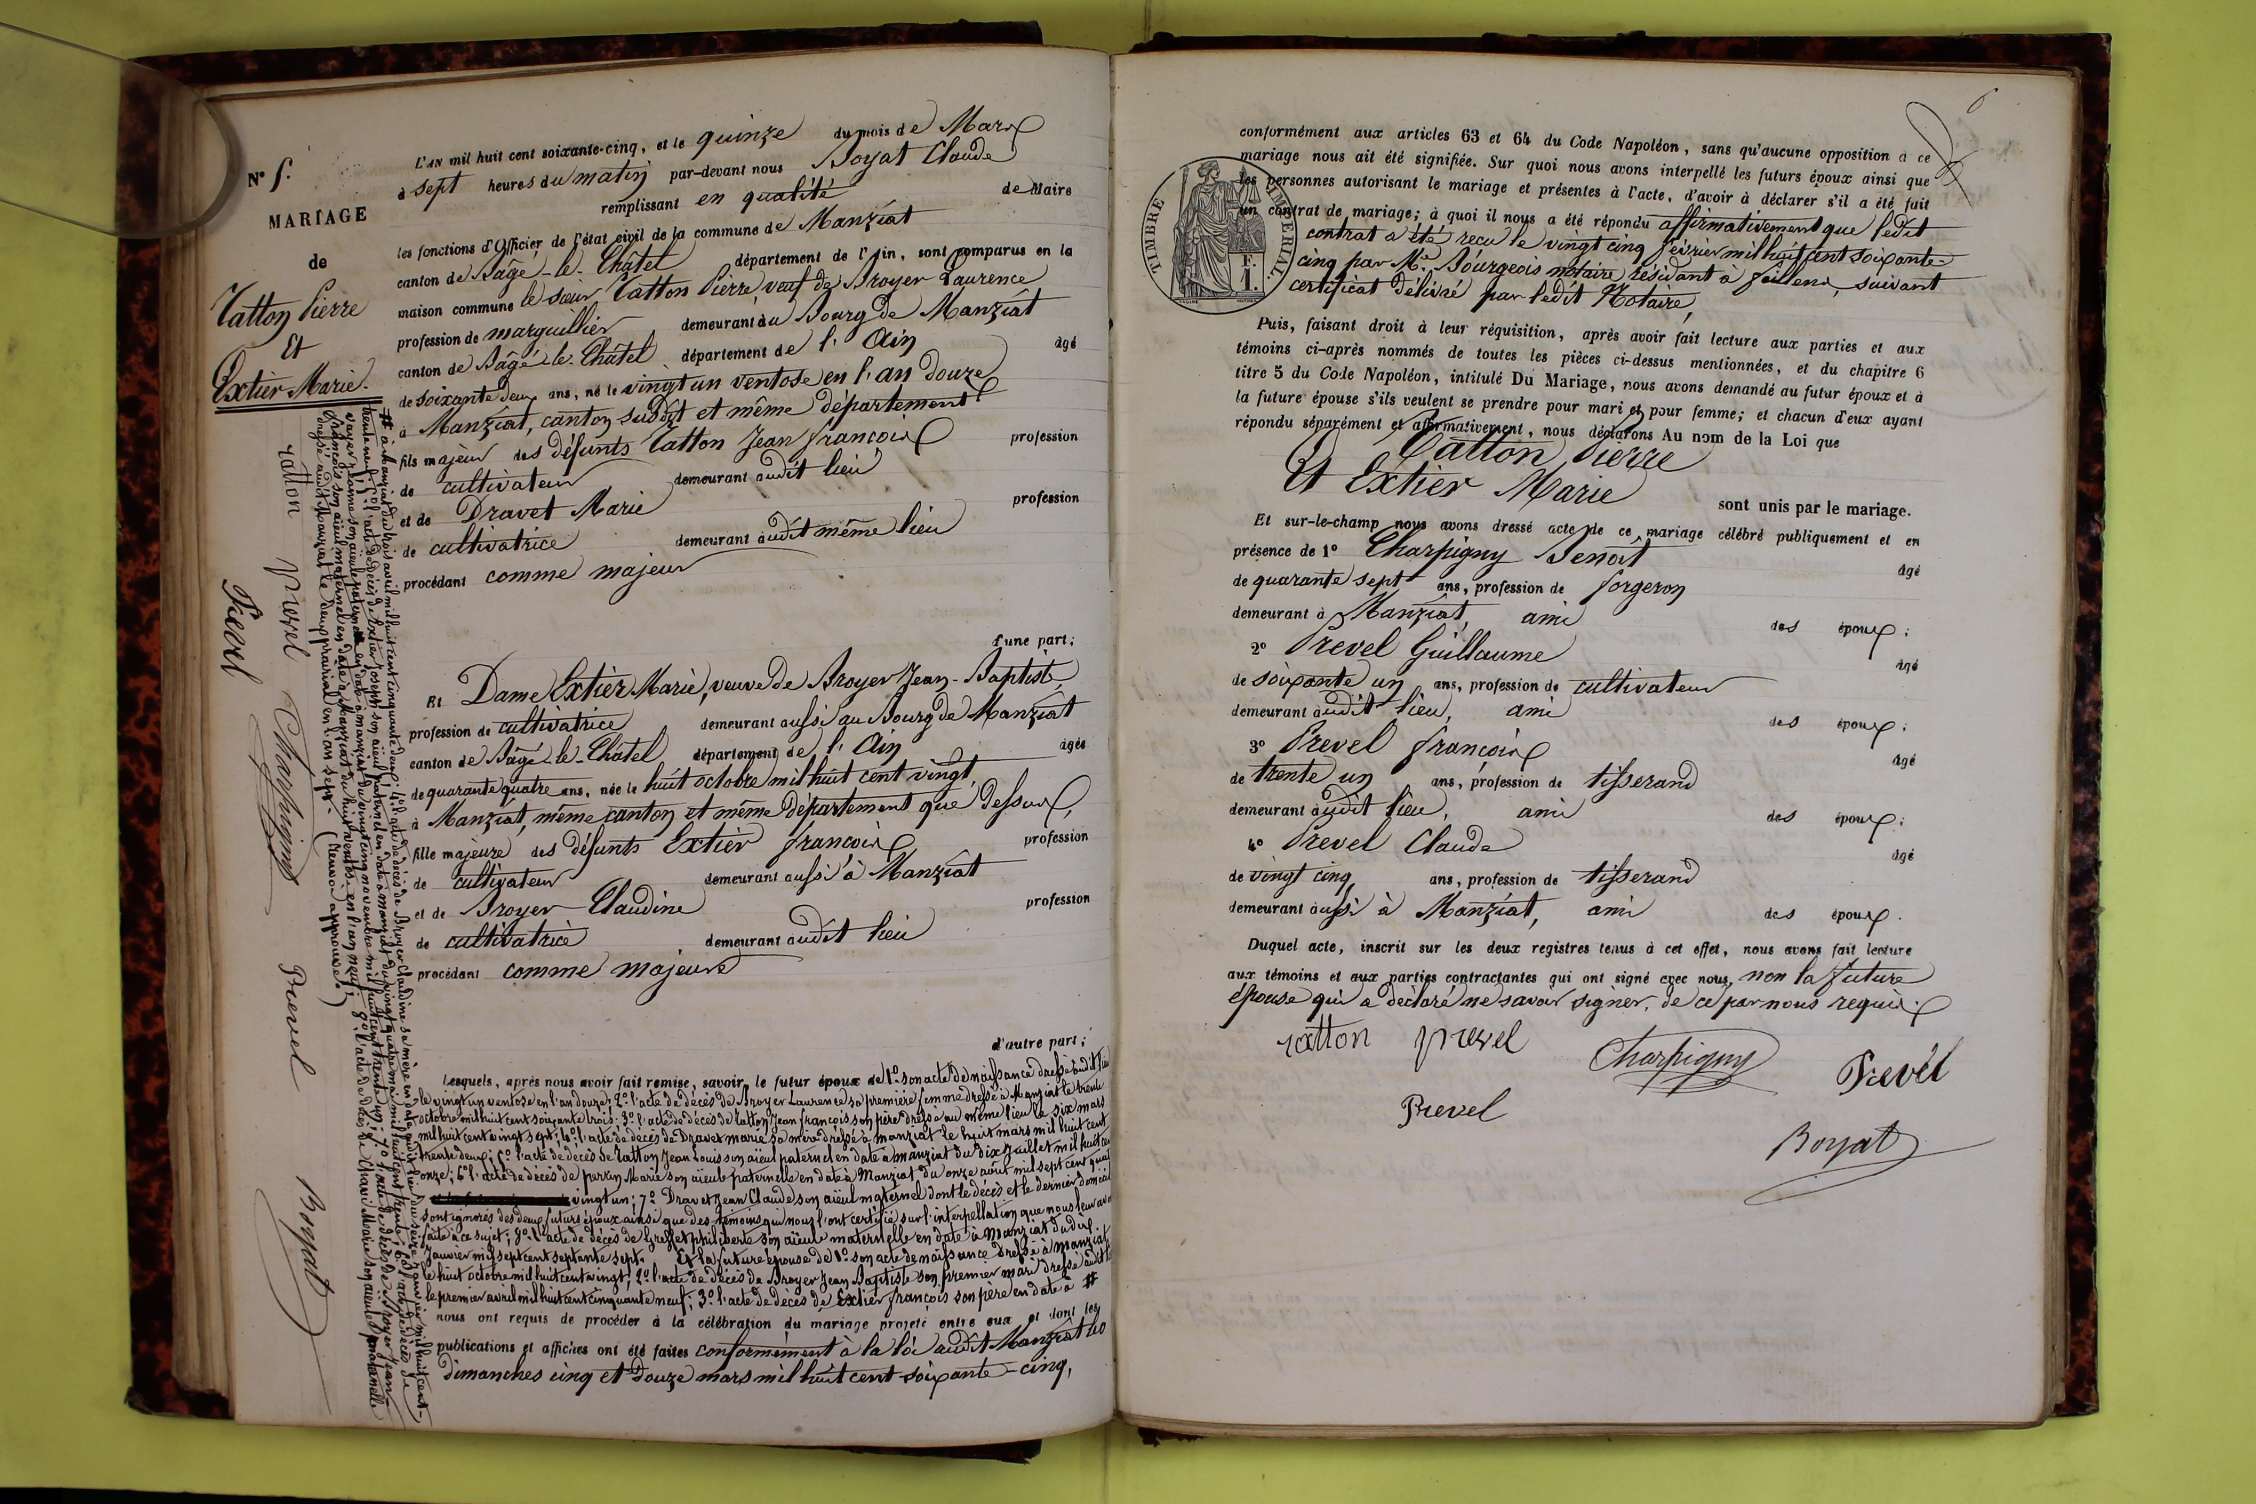 N° 5.
MARIAGE
de
Catton Pierre
Et
Extier Marie.
L'AN mil huit cent soixante-cinq, et le quinze du mois de Mars
à sept heures du matin par-devant nous Boyat Claude
remplissant en qualité de Maire
les fonctions d'Officier de l'état civil de la commune de Manziat
canton de Bâgé-le-Châtel département de l'Ain, sont comparus en la
maison commune le sieur Catton Pierre, veuf de Broyer Laurence
profession de marguillier demeurant au Bourg de Manziat
canton de Bâgé-le-Châtel département de l'Ain âgé
de soixante deux ans, né le vingt un ventose en l'an douze
à Manziat, canton susdit et même département
fils majeur des défunts Catton Jean françois profession
de cultivateur demeurant audit lieu
et de Dravet Marie profession
de cultivatrice demeurant audit même lieu
procédant comme majeur
d'une part;
Et Dame Extier Marie, veuve de Broyer Jean-Baptiste
profession de cultivatrice demeurant aussi au Bourg de Manziat
canton de Bâgé-le-Châtel département de l'Ain âgée
de quarante quatre ans, née le huit octobre mil huit cent vingt
à Manziat, même canton et même département que dessus,
fille majeure des défunts Extier françois profession
de cultivateur demeurant aussi à Manziat
et de Broyer Claudine profession
de cultivatrice demeurant audit lieu
procédant comme majeure
d'autre part;
Lesquels, après nous avoir fait remise, savoir, le futur époux de 1° son acte de naissance dressé audit lieu
le vingt un ventose en l'an douze; 2° l'acte de décès de Broyer Laurence sa première femme dressé à Manziat le trente
octobre mil huit cent soixante trois; 3° l'acte de décès de Catton Jean françois son père dressé au même lieu le six mars
mil huit cent vingt sept; 4° l'acte de décès de Dravet marie sa mère dressé à manziat le huit mars mil huit cent
trente deux; 5° l'acte de décès de Catton Jean Louis son aïeul paternel en date à manziat du dix Juillet mil huit cent
onze; 6° l'acte de décès de perrin Marie son aïeule paternelle en date à Manziat du onze août mil sept cent quatre
vingt un; 7° Dravet Jean Claude son aïeul maternel dont le décès et le dernier domicile
sont ignorés des deux futurs époux ainsi que des témoins qui nous l'ont certifié sur l'interpellation que nous leur avons
faite à ce sujet; 8° l'acte de décès de Greffet philiberte son aïeule maternelle en date à Manziat du dix
Janvier mil sept cent septante sept. Et la future épouse de 1° son acte de naissance dressé à manziat
le huit octobre mil huit cent vingt; 2° l'acte de décès de Broyer Jean Baptiste son premier mari dressé audit lieu
le premier avril mil huit cent cinquante neuf; 3° l'acte de décès de Extier françois son père en date à #
nous ont requis de procéder à la célébration du mariage projeté entre eux et dont les
publications et affiches ont été faites conformément à la loi audit Manziat les
dimanches cinq et douze mars mil huit cent soixante-cinq,
# à manziat du trois avril mil huit cent cinquante deux; 4° l'acte de décès de Broyer Claudine sa mère en date audit lieu du seize janvier mil huit cent
trente neuf; 5° l'acte de décès de Extier Joseph son aïeul paternel en date à manziat du vingt quatre mai mil huit cent trente; 6° l'acte de décès de
son aïeule paternelle en date à manziat du vingt cinq novembre mil huit cent trente un; 7° l'acte de décès de Broyer Jean
françois son aïeul maternel en date à Manziat du huit ventose en l'an neuf; 8° l'acte de décès de Chavi Marie son aïeule maternelle
dressé audit Manziat le deux prairial en l'an sept. (Renvoi approuvé.)
catton prevel Charpigny Prevel Boyat
Prevel
6
TIMBRE IMPERIAL
F.
1.
conformément aux articles 63 et 64 du Code Napoléon, sans qu'aucune opposition à ce
mariage nous ait été signifiée. Sur quoi nous avons interpellé les futurs époux ainsi que
les personnes autorisant le mariage et présentes à l'acte, d'avoir à déclarer s'il a été fait
un contrat de mariage; à quoi il nous a été répondu affirmativement que ledit
contrat a été reçu le vingt cinq février mil huit cent soixante-
cinq par Me Bourgeois notaire résidant à feillens, suivant
certificat délivré par ledit Notaire,
Puis, faisant droit à leur réquisition, après avoir fait lecture aux parties et aux
témoins ci-après nommés de toutes les pièces ci-dessus mentionnées, et du chapitre 6
titre 5 du Code Napoléon, intitulé Du Mariage, nous avons demandé au futur époux et à
la future épouse s'ils veulent se prendre pour mari et pour femme; et chacun d'eux ayant
répondu séparément et affirmativement, nous déclarons Au nom de la Loi que
Catton Pierre
Et Extier Marie
sont unis par le mariage.
Et sur-le-champ nous avons dressé acte de ce mariage célébré publiquement et en
présence de 1° Charpigny Benoît âgé
de quarante sept ans, profession de forgeron
demeurant à Manziat, ami des époux;
2° Prevel Guillaume âgé
de soixante un ans, profession de cultivateur
demeurant audit lieu, ami des époux;
3° Prevel françois âgé
de trente un ans, profession de tisserand
demeurant audit lieu, ami des époux;
4° Prevel Claude âgé
de vingt cinq ans, profession de tisserand
demeurant aussi à Manziat, ami des époux.
Duquel acte, inscrit sur les deux registres tenus à cet effet, nous avons fait lecture
aux témoins et aux parties contractantes qui ont signé avec nous, non la future
épouse qui a déclaré ne savoir signer, de ce par nous requis.
catton prevel Charpigny Prevel
Prevel
Boyat